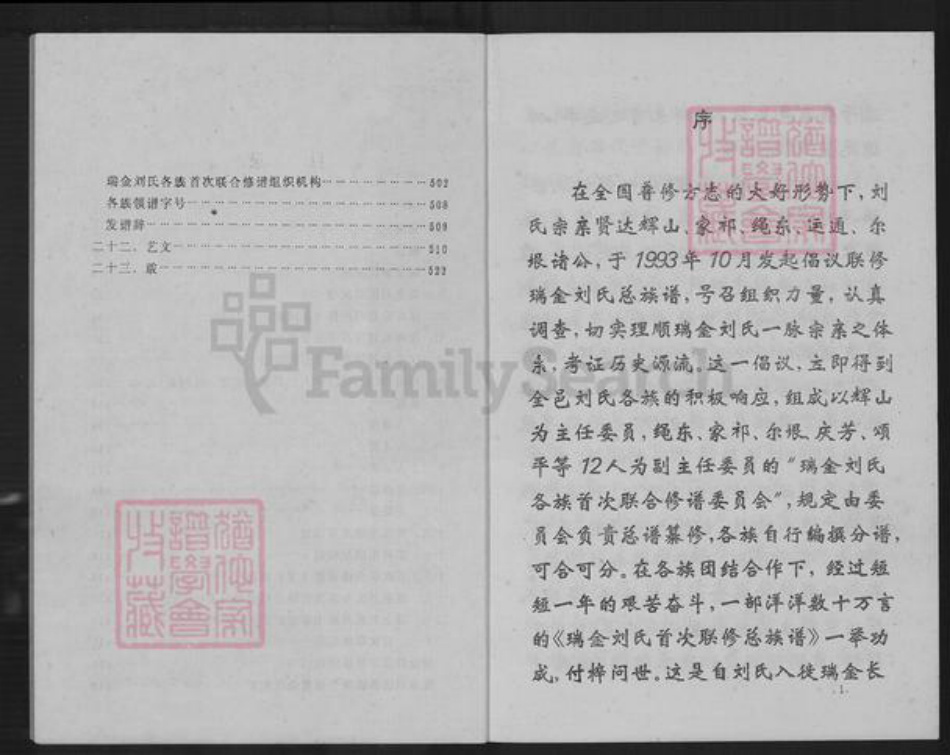 瑞金刘氏各族首次联合修谱组织机构…………………502
各族领谱字号…………………508
发谱辞…………………509
二十二、艺文…………………510
二十三、跋…………………522
序
在全国普修方志的大好形势下,刘
氏宗亲贤达辉山、家祁、绳东、运通、尔
垠诸公,于1993年10月发起倡议联修
瑞金刘氏总族谱,号召组织力量,认真
调查,切实理顺瑞金刘氏一脉宗亲之体
系,考证历史源流。这一倡议,立即得到
全邑刘氏各族的积极响应,组成以辉山
为主任委员,绳东、家祁、尔垠、庆芳、颂
平等12人为副主任委员的“瑞金刘氏
各族首次联合修谱委员会”,规定由委
员会负责总谱纂修,各族自行编撰分谱,
可合可分。在各族团结合作下,经过短
短一年的艰苦奋斗,一部洋洋数十万言
的《瑞金刘氏首次联修总族谱》一举功
成,付梓问世。这是自刘氏入徙瑞金长
·1·
FamilySearch